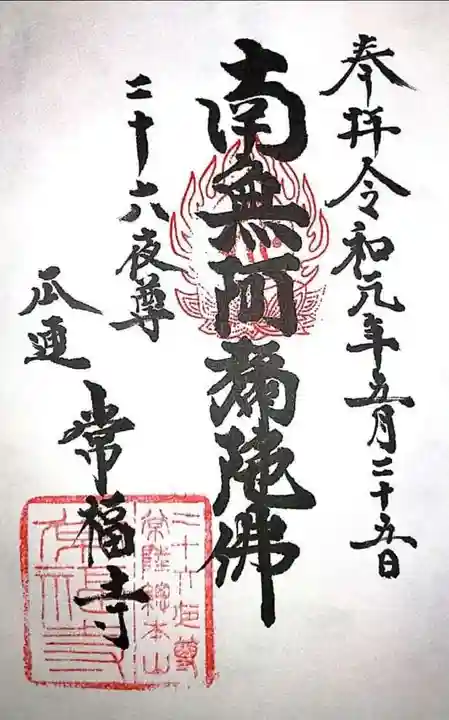 奉拝令和元年五月二十五日
南無阿弥陀佛
二十六夜尊
瓜連
常福寺
二十六夜尊
常陸總本山
常福寺